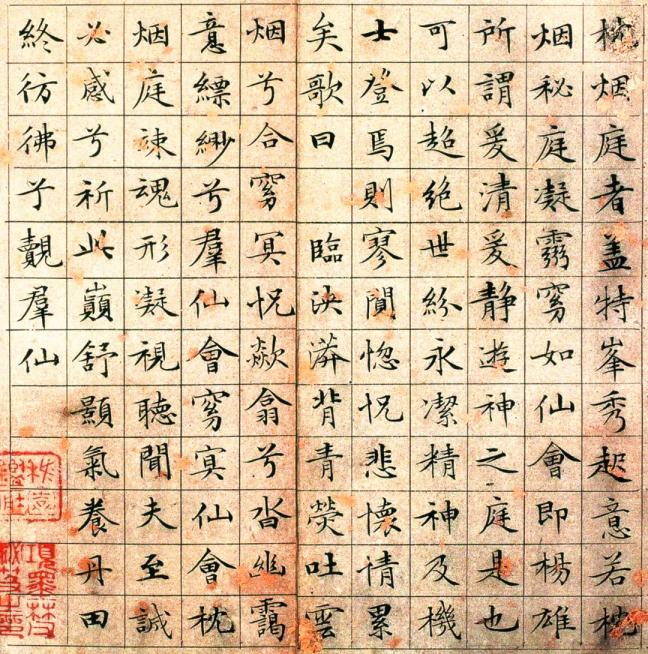 枕烟庭者盖特峯秀起意若枕
烟秘庭凝霛窅如仙會即楊雄
所謂爰清爰静遊神之庭是也
可以超絶世紛永潔精神及機
士登焉則寥閴惚怳悲懷情累
矣歌曰 臨泱漭背青熒吐雲
烟兮合窅冥怳欻翕兮沓幽靄
意縹緲兮羣仙會窅冥仙會枕
烟庭竦魂形凝視聴聞夫至誠
必感兮祈此巔舒顥氣養丹田
終彷彿兮覿羣仙